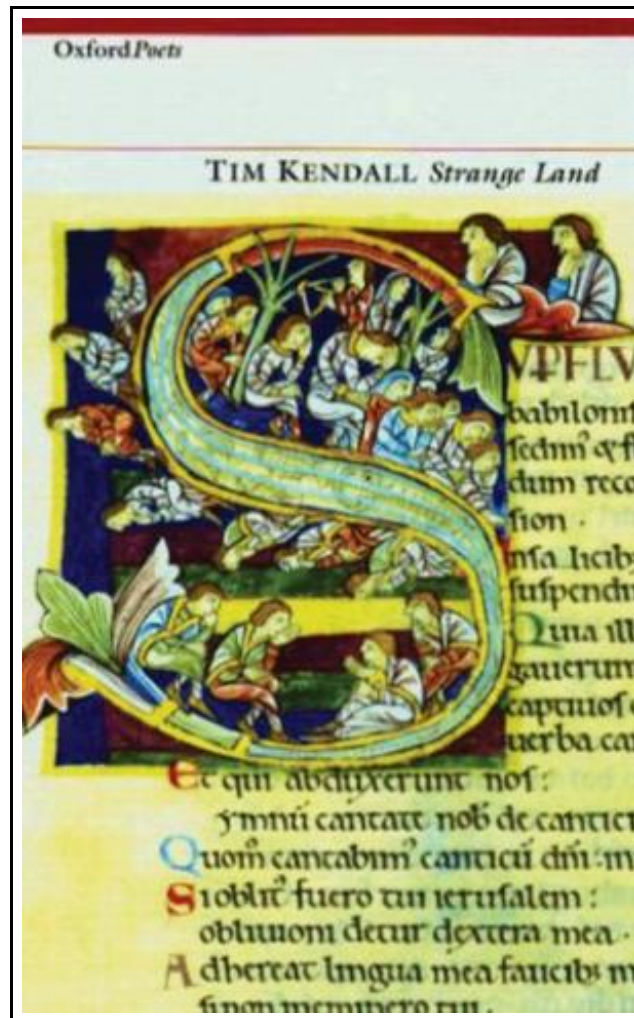 OxfordPoets
TIM KENDALL Strange Land
SVPFLV
babilonis
dum reco
sion ·
suspendim
Quia ill
gauerun
captiuos
uerba can
Et qui abduxerunt nos :
ymnū cantate nob de cantici
Quom̄ cantabim' canticū dñi : in
Si oblit' fuero tui ierusalem :
obliuioni detur dextera mea ·
Adhereat lingua mea faucib; m
si non meminero tui ·